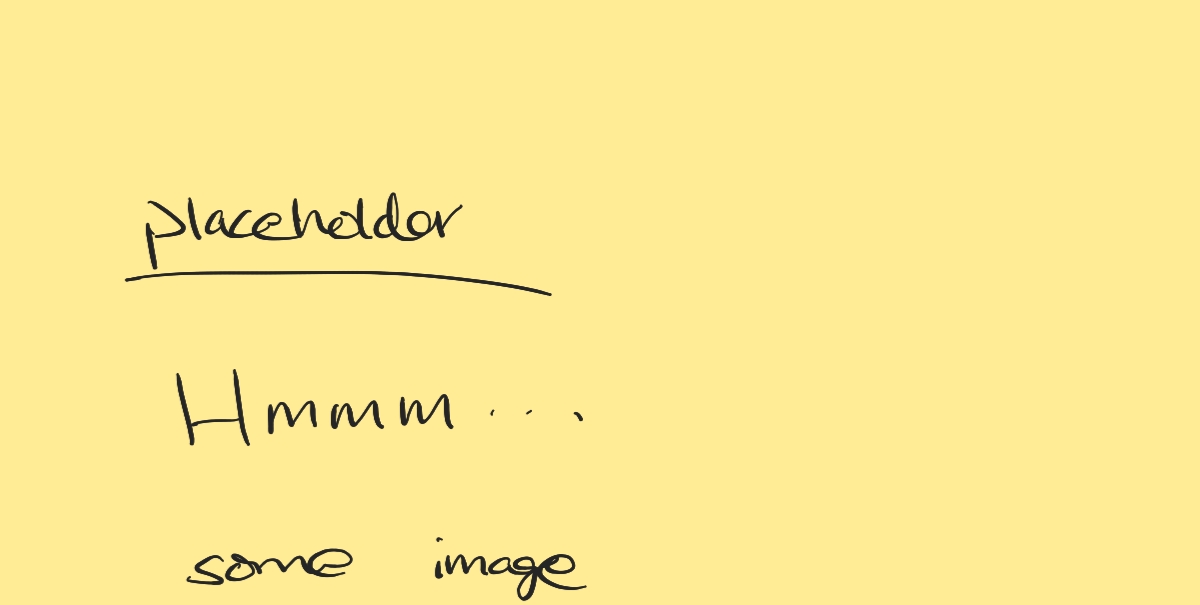 placeholder
Hmmm...
some image